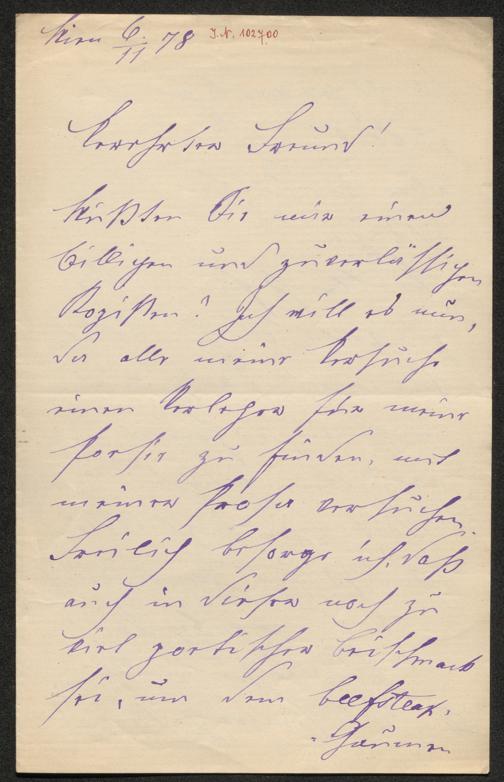 Wien 6./11 78 J.N. 102700
Verehrter Freund!
Wüßten Sie mir einen
billigen und zuverlässigen
Kopisten? Ich will es nun,
da alle meine Versuche
einen Verleger für meine
Poesie zu finden, mit
meiner Prosa versuchen.
Freilich besorge ich, daß
auch in dieser noch zu
viel poetischer Beischmack
sei, um dem beefsteak-
-Gaumen